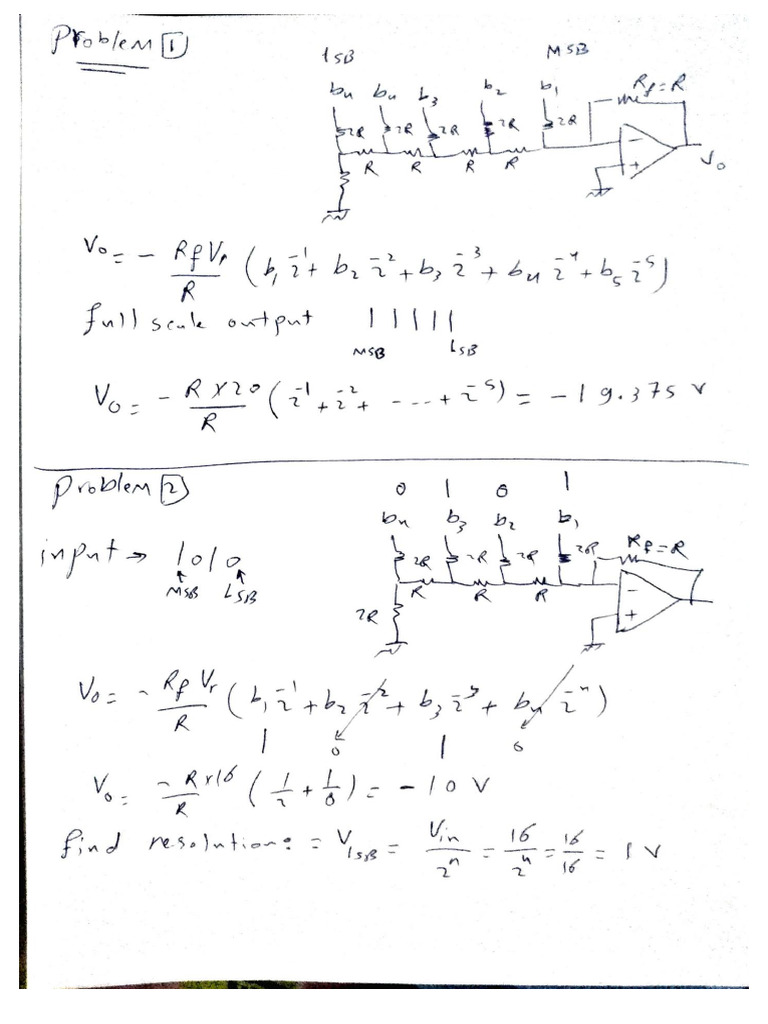 Problem 1
LSB MSB
b4 b4 b3 b2 b1 Rf=R
2R 2R 2R 2R 2R
R R R R
Vo
Vo = - RfVr/R (b1 2^-1 + b2 2^-2 + b3 2^-3 + b4 2^-4 + b5 2^-5)
full scale output 11111
MSB LSB
Vo = - R×20/R (2^-1 + 2^-2 + ---- + 2^-5) = -19.375 v
Problem 2
0 1 0 1
b4 b3 b2 b1
input → 1010
MSB LSB
2R 2R 2R 2R Rf=R
R R R
2R
Vo = - Rf Vr/R (b1 2^-1 + b2 2^-2 + b3 2^-3 + b4 2^-4)
1 0 1 0
Vo = - R×16/R (1/2 + 1/8) = -10 V
find resolution: = V1SB = Vin/2^n = 16/2^4 = 16/16 = 1 v